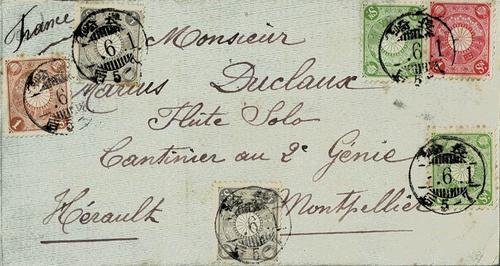 France
Monsieur
Marius Duclaux
Flûte Solo
Cantinier au 2e Génie
Hérault Montpellier